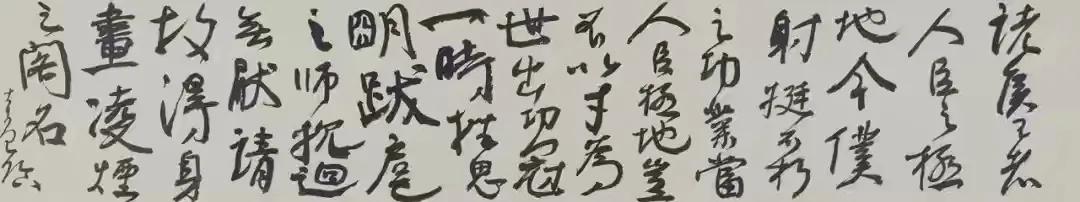 諸侯王者
人臣之極
地今僕
射挺不朽
之功業當
人臣極地豈
不以才為
世出功冠
一時挫思
明跋扈
之师抗迴
無厭請
故得身
畫凌煙
之閣名